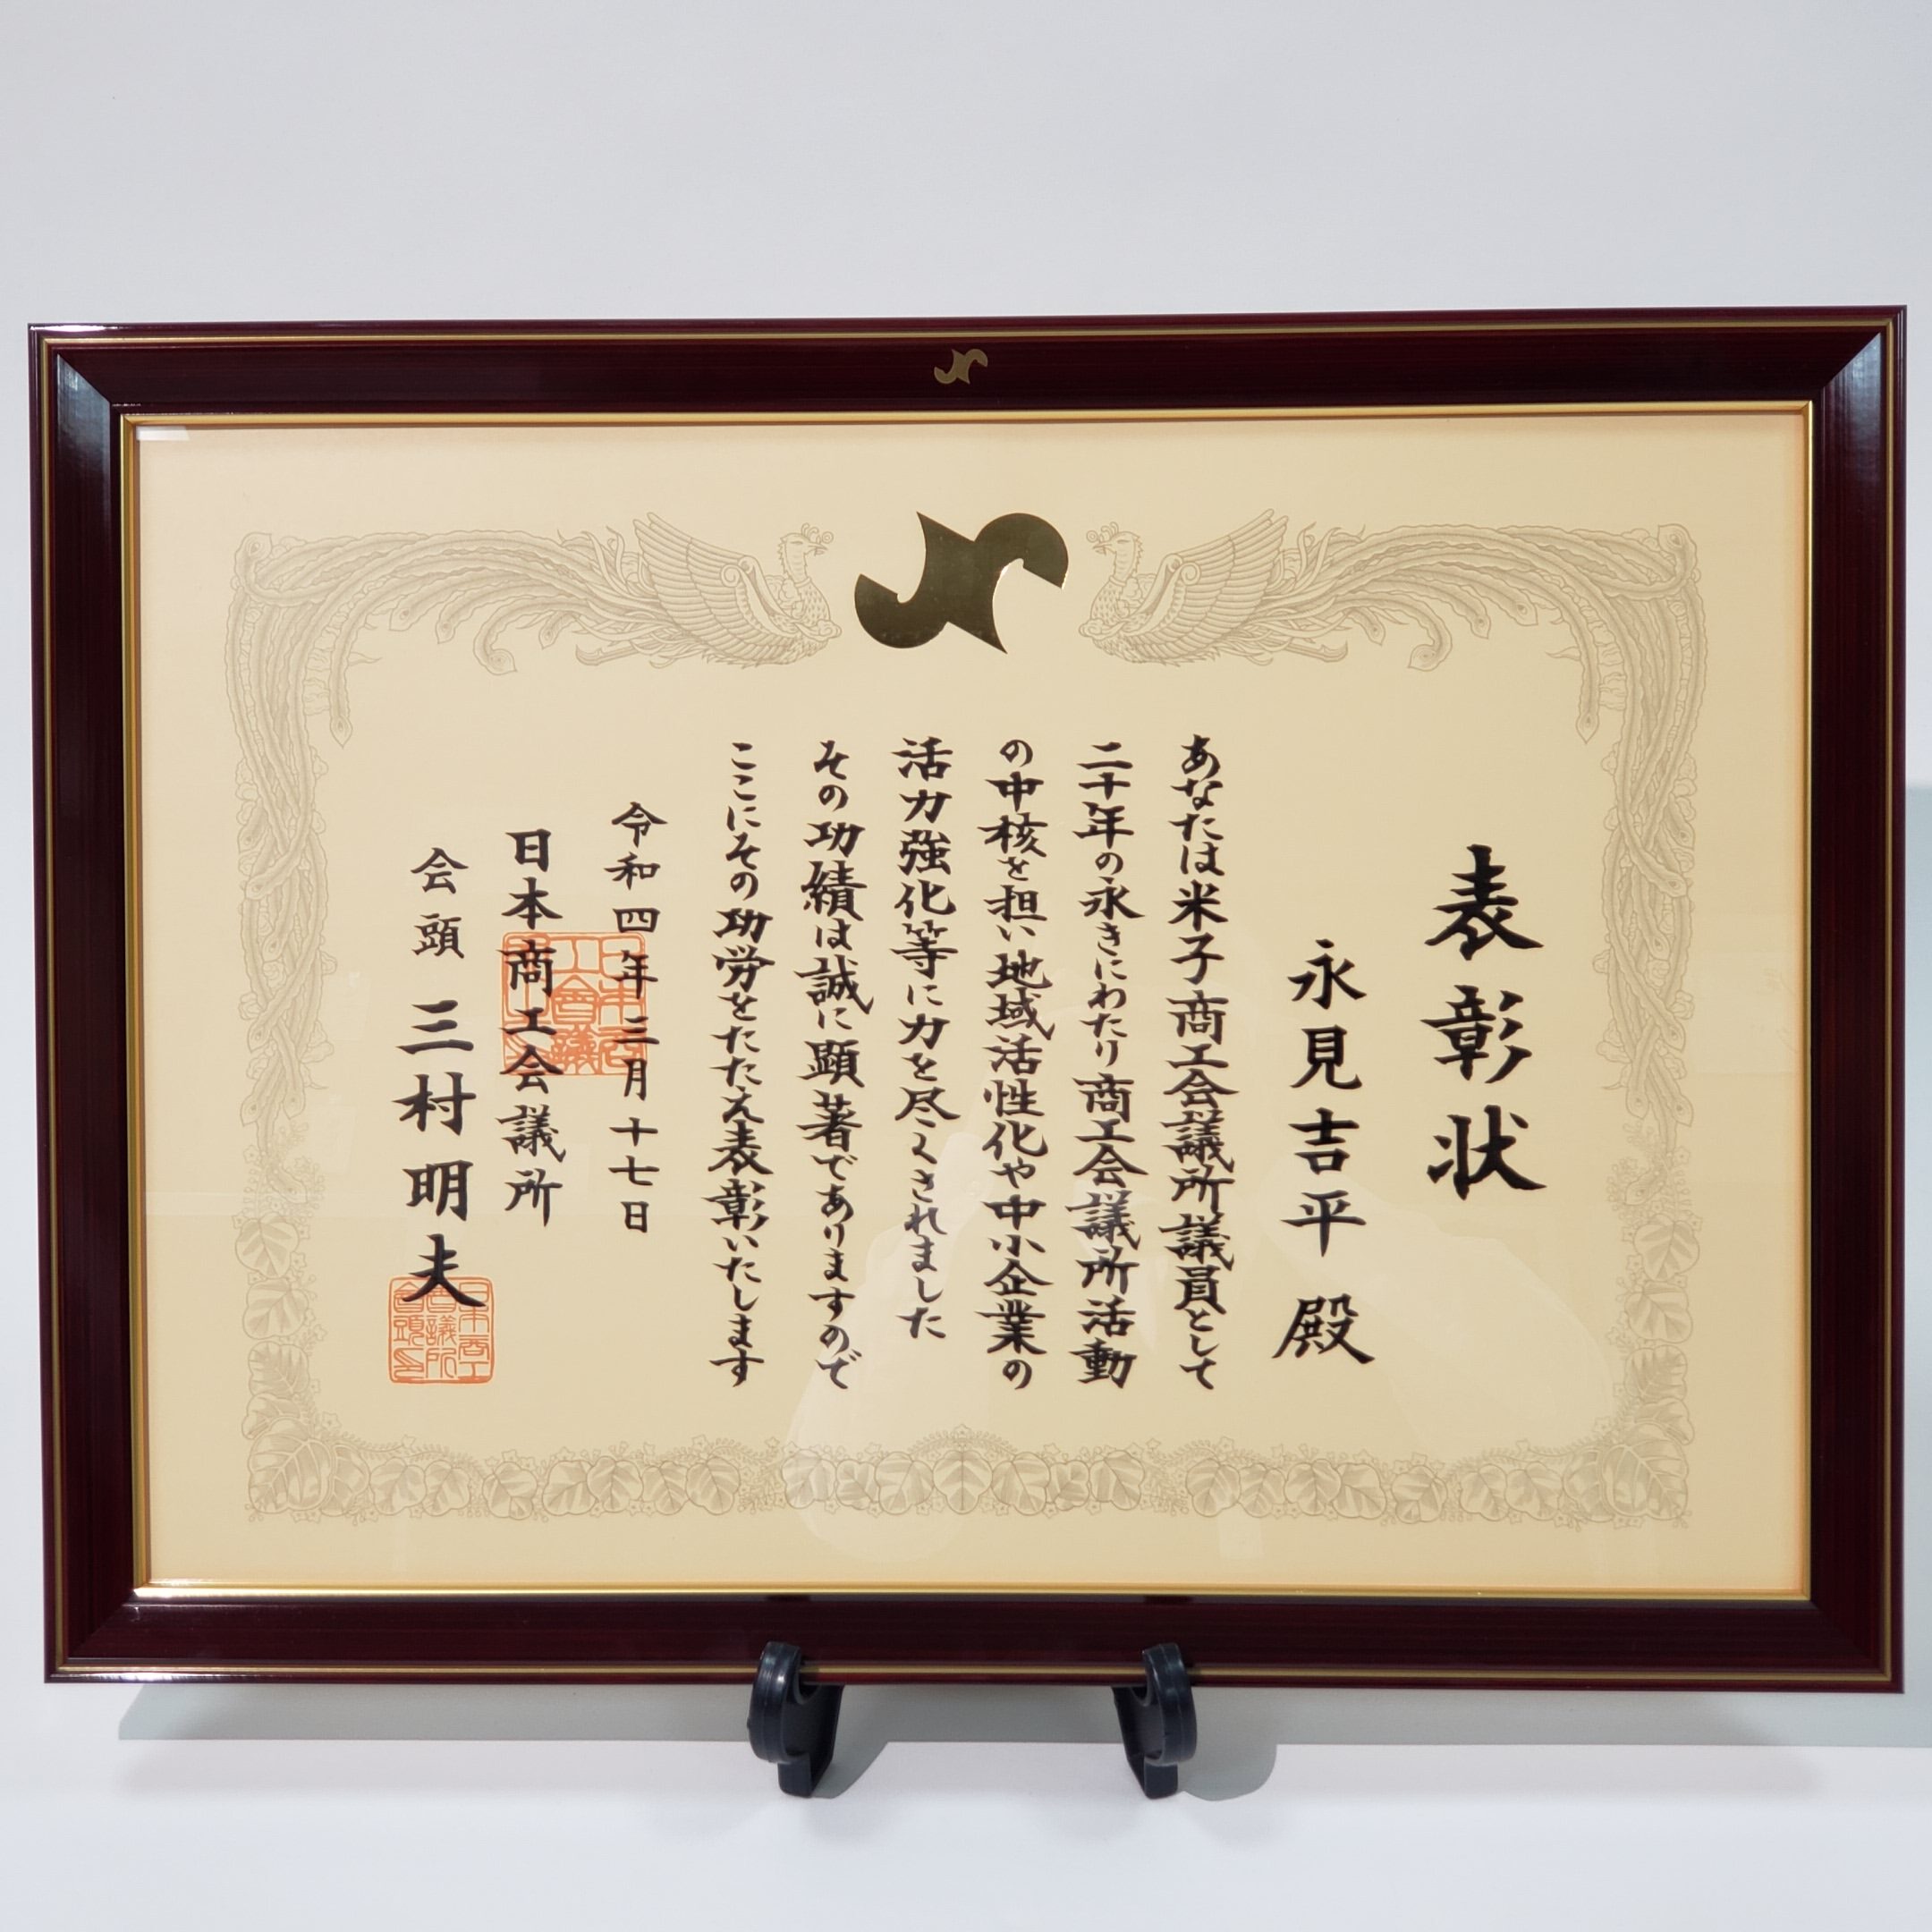 表彰状
永見吉平殿
あなたは米子商工会議所議員として
二十年の永きにわたり商工会議所活動
の中核を担い地域活性化や中小企業の
活力強化等に力を尽くされました
その功績は誠に顕著でありますので
ここにその功労をたたえ表彰いたします
令和四年三月十七日
日本商工会議所
会頭 三村明夫